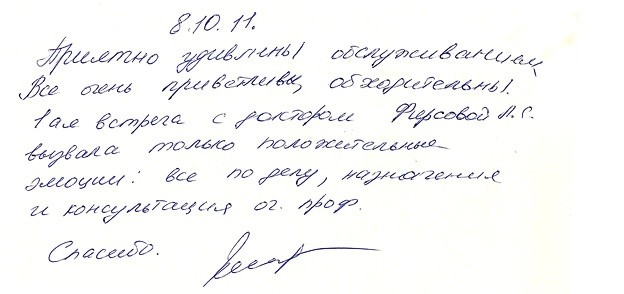 8.10.11.
Приятно удивлены обслуживанием,
Все очень приветливы, обходительны.
1ая встреча с доктором Фирсовой Л.С.
вызвала только положительные
эмоции: все по делу, назначения
и консультация оч. проф.
Спасибо.